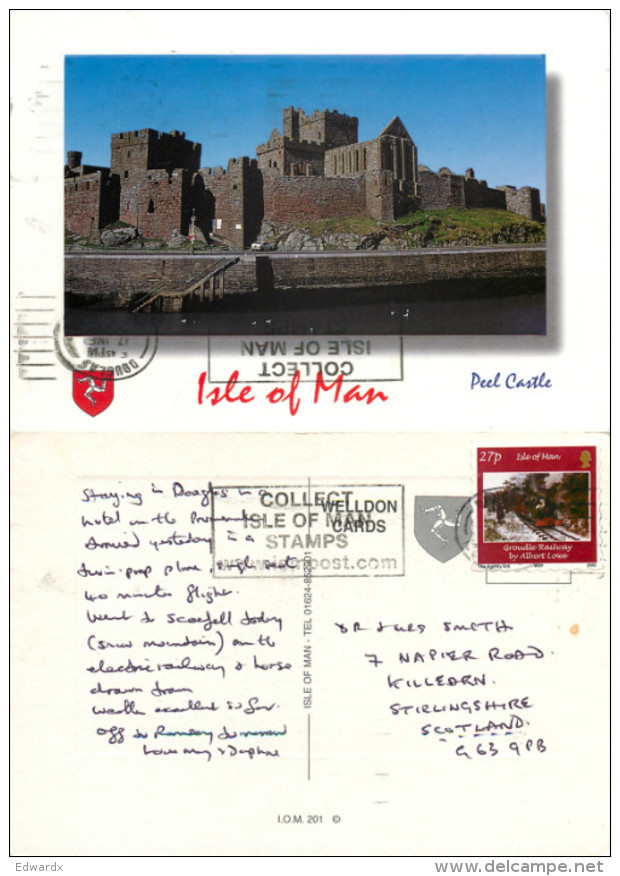 COLLECT
ISLE OF MAN
DOUGLAS
Isle of Man
Peel Castle
27p Isle of Man
Groudle Railway
by Albert Lowe
COLLECT
ISLE OF MAN
STAMPS
post.com
WELLDON
CARDS
Staying in Douglas in a
hotel on the Promenade
Arrived yesterday in a
twin-prop plane, eight seat
40 minutes flight.
Went to Snaefell today
(snow mountain) on the
electric railway & horse
drawn tram
Weather excellent so far.
off to Ramsey tomorrow
Love & Daphne
ISLE OF MAN - TEL 01624-852201
DR & MRS SMITH
7 NAPIER ROAD.
KILLEARN.
STIRLINGSHIRE
SCOTLAND.
G63 9PB
I.O.M. 201 ©
Edwardx
delcampe.net